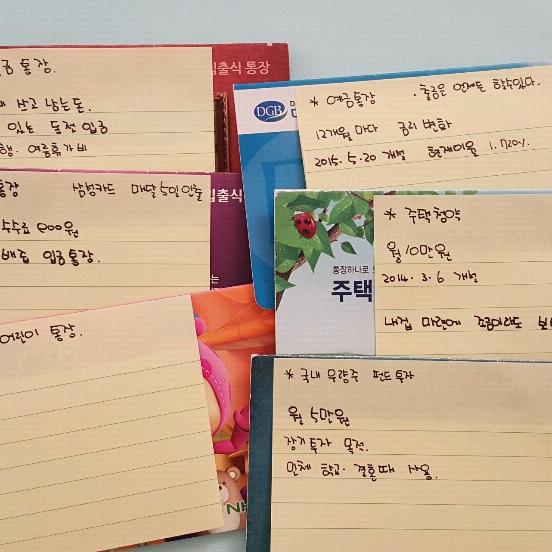 금통장.
쓰고 남는돈.
있는 동전 입금
행. 여름휴가비
입출식 통장
통장 삼성카드 매달 5일 인출
수수료 900원
배당 입금통장.
입출식
어린이 통장.
NH
DGB
* 예금통장 . 출금은 언제든 할수있다.
12개월 마다 금리 변화
2015. 5. 20 개설 현재이율 1.720%.
통장하나로
주택
* 주택청약
월 10만원
2014. 3. 6 개설
내집 마련에 조금이라도
* 국내 우량주 펀드 투자
월 5만원
장기 투자 목적.
민체 학교. 결혼때 사용.